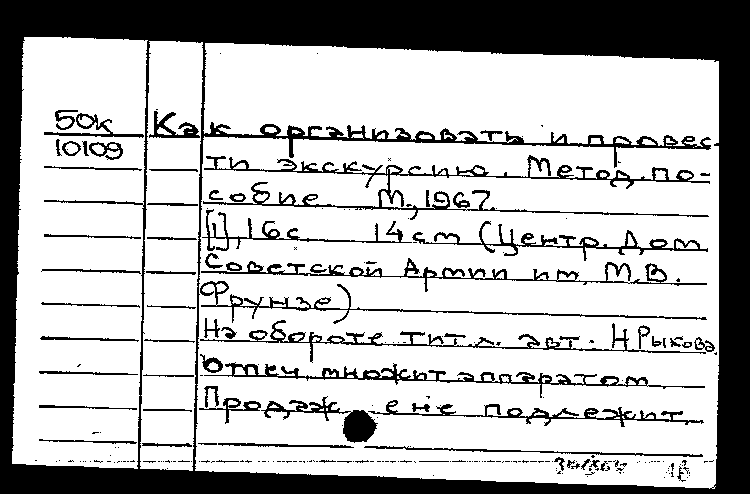 50к Как организовать и провес-
10109 ти экскурсию. Метод. по-
собие. М., 1967.
[1], 16с. 14см (Центр. Дом
Советской Армии им. М.В.
Фрунзе)
На обороте тит.л. авт.: Н Рыкова.
Отпеч. множит.аппаратом.
Продаж. е не подлежит.